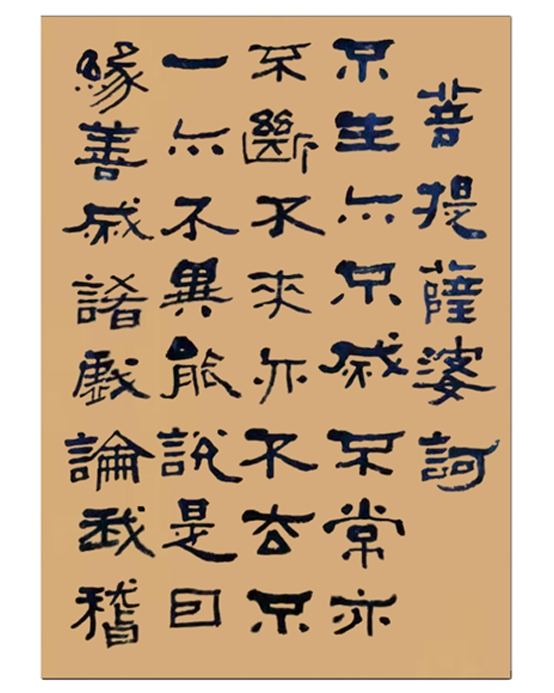 菩提薩婆訶
不生亦不滅不常亦
不斷不來亦不去不
一亦不異能說是因
緣善滅諸戲論我稽